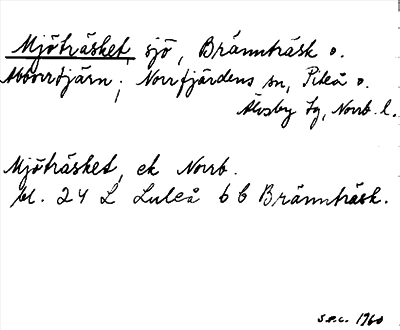 Mjöträsket, sjö, Brännträsk o.
Abborrtjärn, Norrfjärdens sn, Piteå o.
Älvsby tg, Norrb. l.
Mjöträsket, ek Norrb.
bl. 24 L Luleå 6 b Brännträsk.
S.E.C. 1960